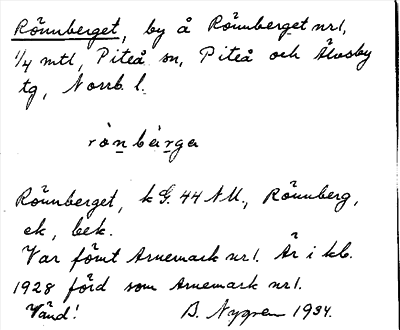 Rönnberget, by å Rönnberget nr 1,
1/4 mtl, Piteå sn, Piteå och Älvsby
tg, Norrb. l.
Rönnberget, k G. 44 NU., Rönnberg,
ek, bek.
Var förut Arnemark nr 1. Är i kb.
1928 förd som Arnemark nr 1.
Vänd! B. Nygren 1934.